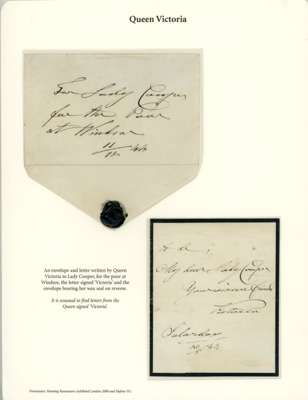 Queen Victoria
For Lady Cowper
for the Poor
at Windsor
An envelope and letter written by Queen
Victoria to Lady Cooper, for the poor at
Windsor, the letter signed 'Victoria' and the
envelope bearing her wax seal on reverse.
It is unusual to find letters from the
Queen signed 'Victoria'.
My dear Lady Cowper
Your sincere friend
Victoria
Saturday